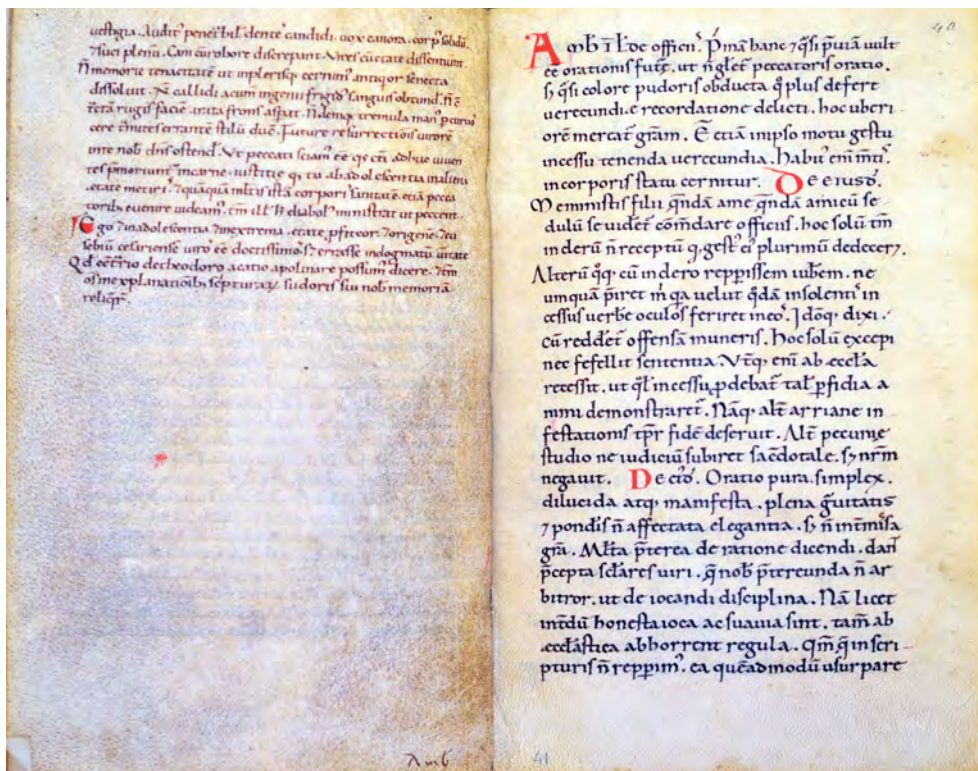 uestigia. Auditꝰ penetͬbilꝭ dente candidi. uox canora. corpꝰ solidū
⁊ suci plenū. Cani cū robore discrepant. Vires cū etate dissentiunt.
memorie tenacitatē ut inplerisq; cernimꝰ antiqor senecta
dissoluit. calliditatis acumē frigidꝰ sanguis
aratā rugis faciē frons asperat. tremula manꝰ
errantē stilū Future resurrectionis uirorē
innobꝭ dn̄s ostendit. Vt peccati sciamꝰ ēē qd̄ cet̄i adhuc uiuen
tes p̄moriunt̄ incarne. iustitie qd̄ tu ab adolescentia inalieni
etate metiri. ⁊ quāquā istā corporis sanitatē etiā pecca
toribꝫ euenire uideam. tm̄ illis diabolꝰ ministrat ut peccent.
Ego ⁊ inadolescentia ⁊ inextrema etate p̄fiteor. ⁊ origenē ⁊ eu
sebiū cesariensē uiros ēē doctissimos. sꝫ errasse indogmatū ueritate
Qd̄ econtrio de theodoro acatio apolinare possum dicere. ⁊ tm̄
om̄s inexplanationibꝫ scripturarū sudoris sui nobꝭ memoriā
reliqrt̄.
40
Amb̄ ī lib̄ de officiis. P̄mā hanc ⁊ q̄si p̄uiā uult
ēē orationis futē. ut n̄ gleat̄ peccatoris oratio.
sꝫ q̄si colore pudoris obducta q̄ plus defert
uerecundie recordatione delicti. hoc uberi
orē mercat̄ gr̄am. Ē etiā inipso motu gestu
incessu tenenda uerecundia. habitꝰ eni m̄tis
incorporis statu cernitur. De eiusd̄.
Meministis filii qn̄dā ame qn̄dā amicū se
dulis se uideret̄ cōm̄dare officiis. hoc solū tm̄
inclerū n̄ receptū q̄ gestꝰ eiꝰ plurimū dedeceret.
Alterū qq̄; cū inclero repperissem iubem. ne
umquā p̄iret m̄ q̄a uelut q̄dā insolentis in
cessus uerbere oculos feriret meos. Idq̄; dixi.
cū reddet̄ offensā muneris. Hoc solū excepi
nec fefellit sententia. Vt̄q; eni ab ecclˉa
recessit. ut ql̄ incessu ꝓdebat̄ talꝭ ꝑfidia a
nimi demonstraret̄. Nāq; alt̄ arriane in
festationis tp̄r fidē deseruit. Alt̄ pecunie
studio ne iudiciū subiret sac̄dotale. sꝫ nr̄m
negauit. De eiꝰd̄. Oratio pura. simplex.
dilucida atq; manifesta. plena g̃uitatis
⁊ pondis n̄ affectata elegantia. sꝫ n̄ int̄missa
gr̄a. Ml̄ta p̄terea de ratione dicendi. dant̄
p̄cepta sclāres uiri. q̄ nob̄ p̄tereunda n̄ ar
bitror. ut de iocandi disciplina. Nā licet
int̄dū honesta ioca ac suauia sint. tam̄ ab
ecclˉastica abhorrent regula. Qm̄ q̄ inscri
pturis n̄ repperimꝰ. ea quēadmodū usurpare
Amb
41